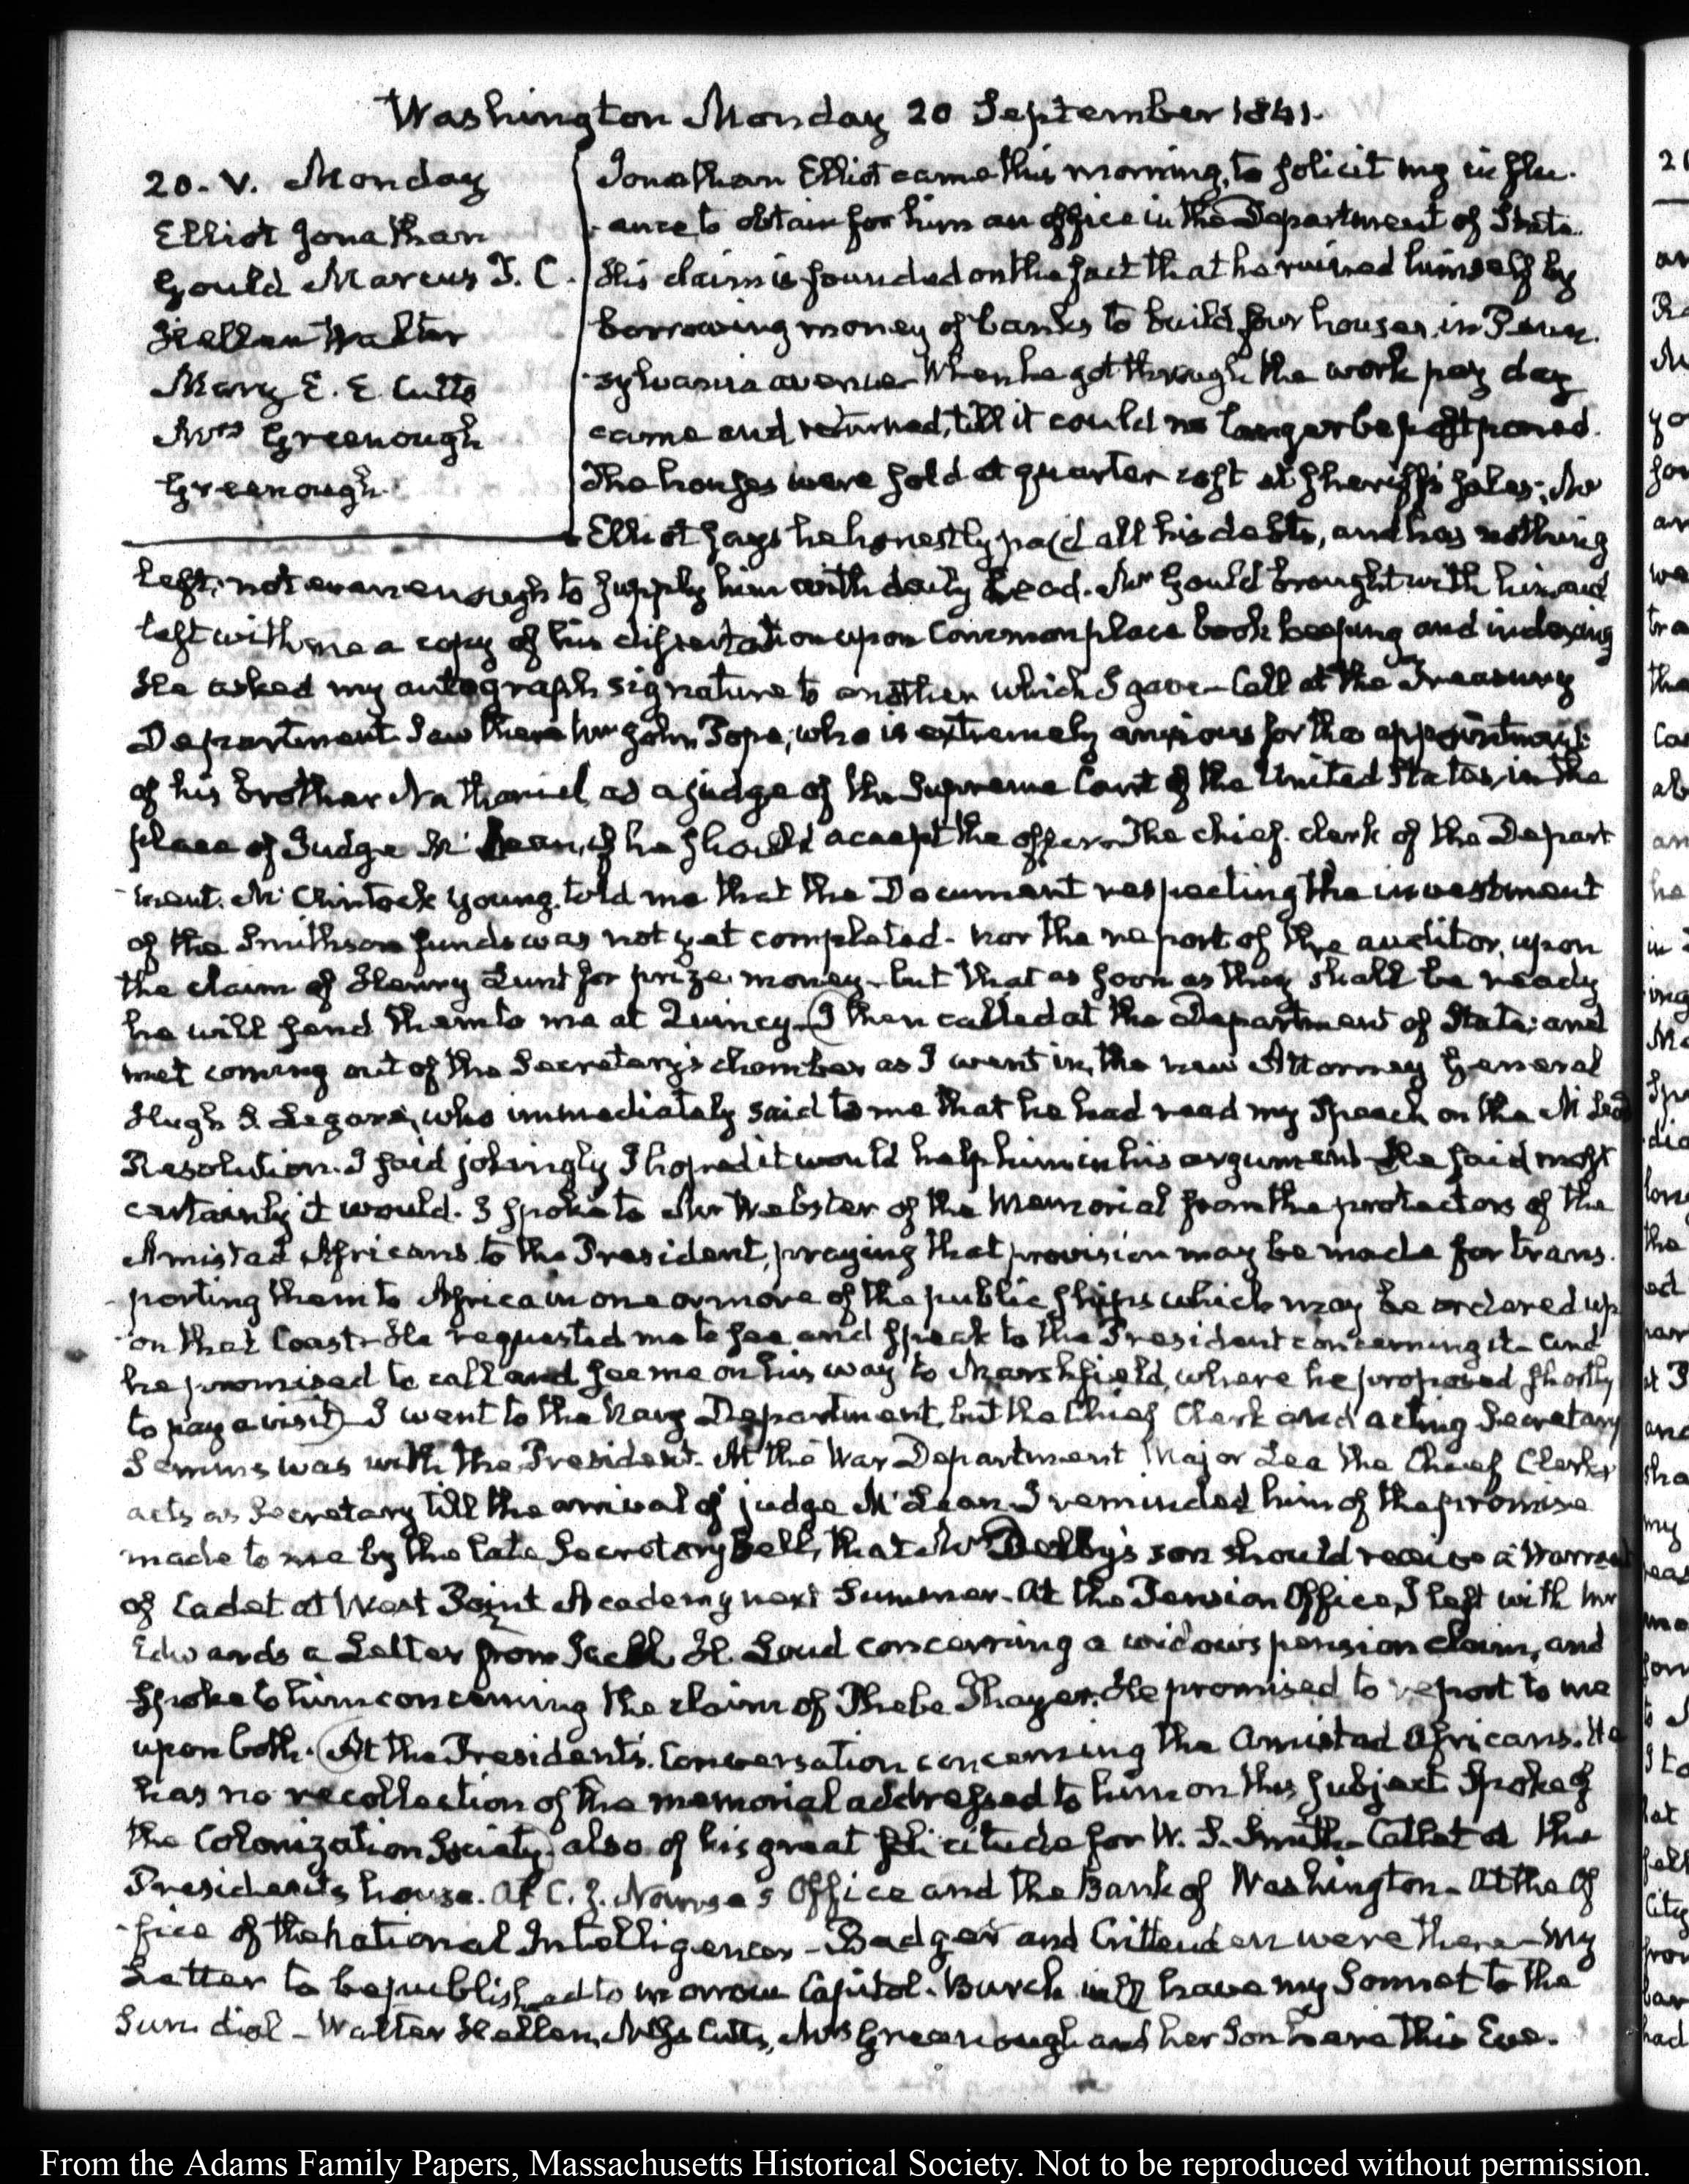 Washington Monday 20 September 1841.
20. V. Monday
Elliot Jonathan
Gould Marcus T. C.
Hellen Walter
Mary E. E. Cutts
Mrs Greenough
Greenough.
Jonathan Elliot came this morning, to solicit my influ-
-ence to obtain for him an office in the Department of State.
His claim is founded on the fact that he ruined himself by
borrowing money of banks to build four houses, in Penn-
-sylvania avenue. When he got through the work pay day
came and returned, till it could no longer be postponed.
The houses were sold at quarter cost at sheriff's sales; Mr
Elliot says he honestly paid all his debts, and has nothing
left; not even enough to supply him with daily bread. Mr Gould brought with him and
left with me a copy of his dissertation upon Commonplace book keeping and indexing
He asked my autograph signature to another which I gave – Call at the Treasury
Department. Saw there Mr John Pope, who is extremely anxious for the appointment
of his brother Nathaniel, as a judge of the Supreme Court of the United States, in the
place of Judge McLean, if he should accept the offer. The chief clerk of the Depart
-ment. McClintock Young, told me that the Document respecting the investment
of the Smithson funds was not yet completed – nor the report of the auditor, upon
the claim of Henry Lunt for prize money – but that as soon as they shall be ready
he will send them to me at Quincy – I then called at the Department of State; and
met coming out of the Secretary's chamber as I went in, the new Attorney General
Hugh S. Legaré, who immediately said to me that he had read my Speech on the McLeod
Resolution. I said jokingly I hoped it would help him in his argument – He said most
certainly it would. I spoke to Mr Webster of the Memorial from the protectors of the
Amistad Africans to the President, praying that provision may be made for trans-
-porting them to Africa in one or more of the public ships which may be ordered up
-on that Coast – He requested me to see and speak to the President concerning it – and
he promised to call and see me on his way to Marshfield, where he proposed shortly
to pay a visit) – I went to the Navy Department, but the Chief Clerk and acting Secretary
Simms was with the President. At the War Department Major Lee the Chief Clerk,
acts as Secretary till the arrival of judge McLean – I reminded him of the promise
made to me by the late Secretary Bell, that Mr Dolby's son should receive a Warrant
of Cadet at West Point Academy next Summer – At the Pension Office, I left with Mr
Edwards a Letter from H. Loud concerning a widow's pension claim, and
spoke to him concerning the claim of Phebe Thayer. He promised to report to me
upon both. (At the President's. Conversation concerning the Amistad Africans. He
has no recollection of the memorial addressed to him on this subject. Spoke of
the Colonization Society) also of his great solicitude for W. S. Smith – Called at the
President's house. At C. J. Nourse's Office and the Bank of Washington – At the Of
-fice of the National Intelligencer – Badger and Crittenden were there – My
Letter to be published to morrow Capitol. Burch will have my Sonnet to the
Sun dial – Walter Hellen, Miss Cutts, Mrs Greenough and her Son here this Eve.
From the Adams Family Papers, Massachusetts Historical Society. Not to be reproduced without permission.